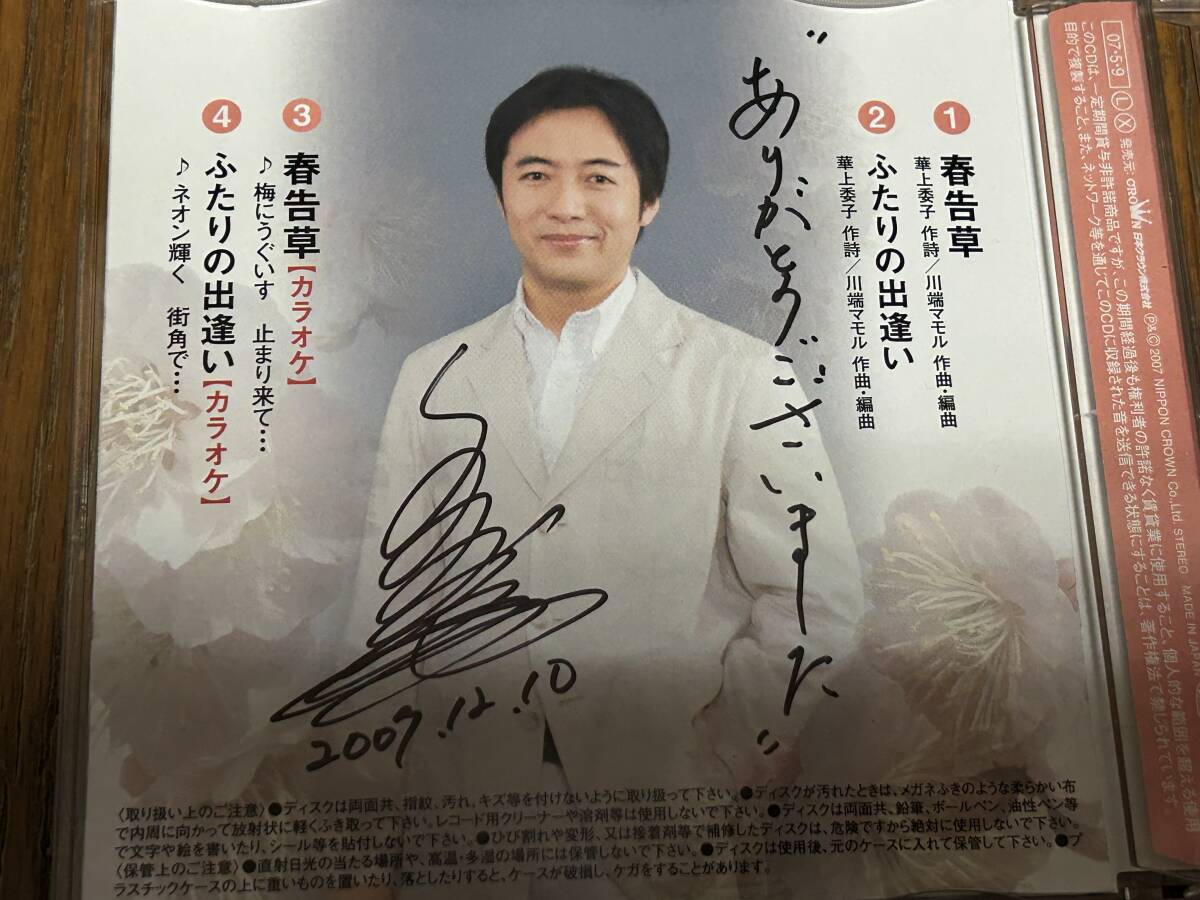 07・5・9 Ⓛ Ⓧ 発売元: CROWN 日本クラウン株式会社 Ⓟ&Ⓒ 2007 NIPPON CROWN Co.,Ltd. STEREO MADE IN JAPAN
このCDは、一定期間貸与非許諾商品ですが、この期間経過後も権利者の許諾なく賃貸業に使用すること、個人的な範囲を超える使用
目的で複製すること、また、ネットワーク等を通じてこのCDに収録された音を送信できる状態にすることは、著作権法で禁じられています
1 春告草
華上委子 作詩/川端マモル 作曲・編曲
2 ふたりの出逢い
華上委子 作詩/川端マモル 作曲・編曲
“ありがとうございました”
3 春告草【カラオケ】
♪梅にうぐいす 止まり来て…
4 ふたりの出逢い【カラオケ】
♪ネオン輝く 街角で…
2007.12.10
〈取り扱い上のご注意〉●ディスクは両面共、指紋、汚れ、キズ等を付けないように取り扱って下さい。●ディスクが汚れたときは、メガネふきのような柔らかい布
で内周に向かって放射状に軽くふき取って下さい。レコード用クリーナーや溶剤等は使用しないで下さい。●ディスクは両面共、鉛筆、ボールペン、油性ペン等
で文字や絵を書いたり、シール等を貼付しないで下さい。●ひび割れや変形、又は接着剤等で補修したディスクは、危険ですから絶対に使用しないで下さい。
〈保管上のご注意〉●直射日光の当たる場所や、高温・多湿の場所には保管しないで下さい。●ディスクは使用後、元のケースに入れて保管して下さい。●プ
ラスチックケースの上に重いものを置いたり、落としたりすると、ケースが破損し、ケガをすることがあります。